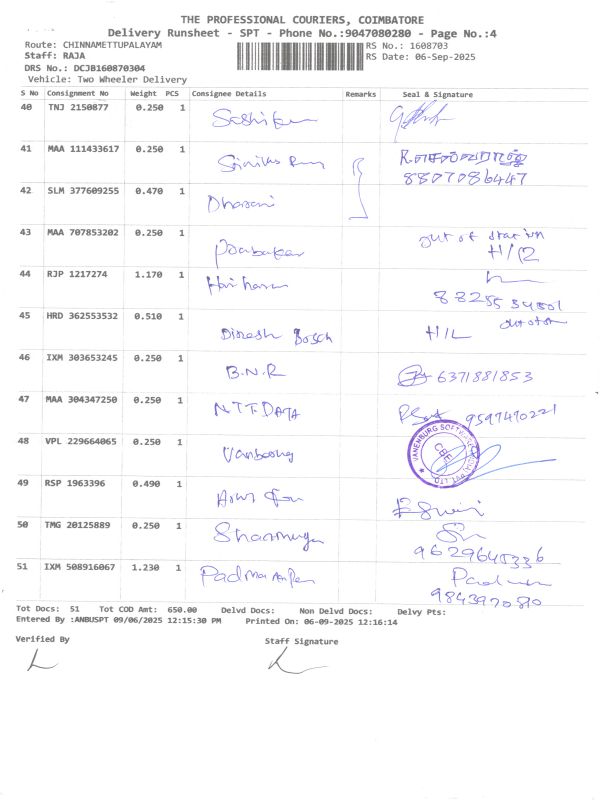 THE PROFESSIONAL COURIERS, COIMBATORE
Delivery Runsheet - SPT - Phone No.:9047080280 - Page No.:4
Route: CHINNAMETTUPALAYAM
Staff: RAJA
DRS No.: DCJB160870304
Vehicle: Two Wheeler Delivery
RS No.: 1608703
RS Date: 06-Sep-2025
S No Consignment No Weight PCS Consignee Details Remarks Seal & Signature
40 TNJ 2150877 0.250 1
41 MAA 111433617 0.250 1
8807086447
42 SLM 377609255 0.470 1 Dharani
43 MAA 707853202 0.250 1 out of station
H/12
44 RJP 1217274 1.170 1 Hariharan
45 HRD 362553532 0.510 1 Dinesh Bosch H/L
46 IXM 303653245 0.250 1 B.N.R 6371881853
47 MAA 304347250 0.250 1 NTT.DATA 9597470221
48 VPL 229664065 0.250 1 VANENBURG SOFTWARE CBE
49 RSP 1963396 0.490 1
50 TMG 20125889 0.250 1
51 IXM 508916067 1.230 1
Tot Docs: 51 Tot COD Amt: 650.00 Delvd Docs: Non Delvd Docs: Delvy Pts:
Entered By :ANBUSPT 09/06/2025 12:15:30 PM Printed On: 06-09-2025 12:16:14
Verified By Staff Signature